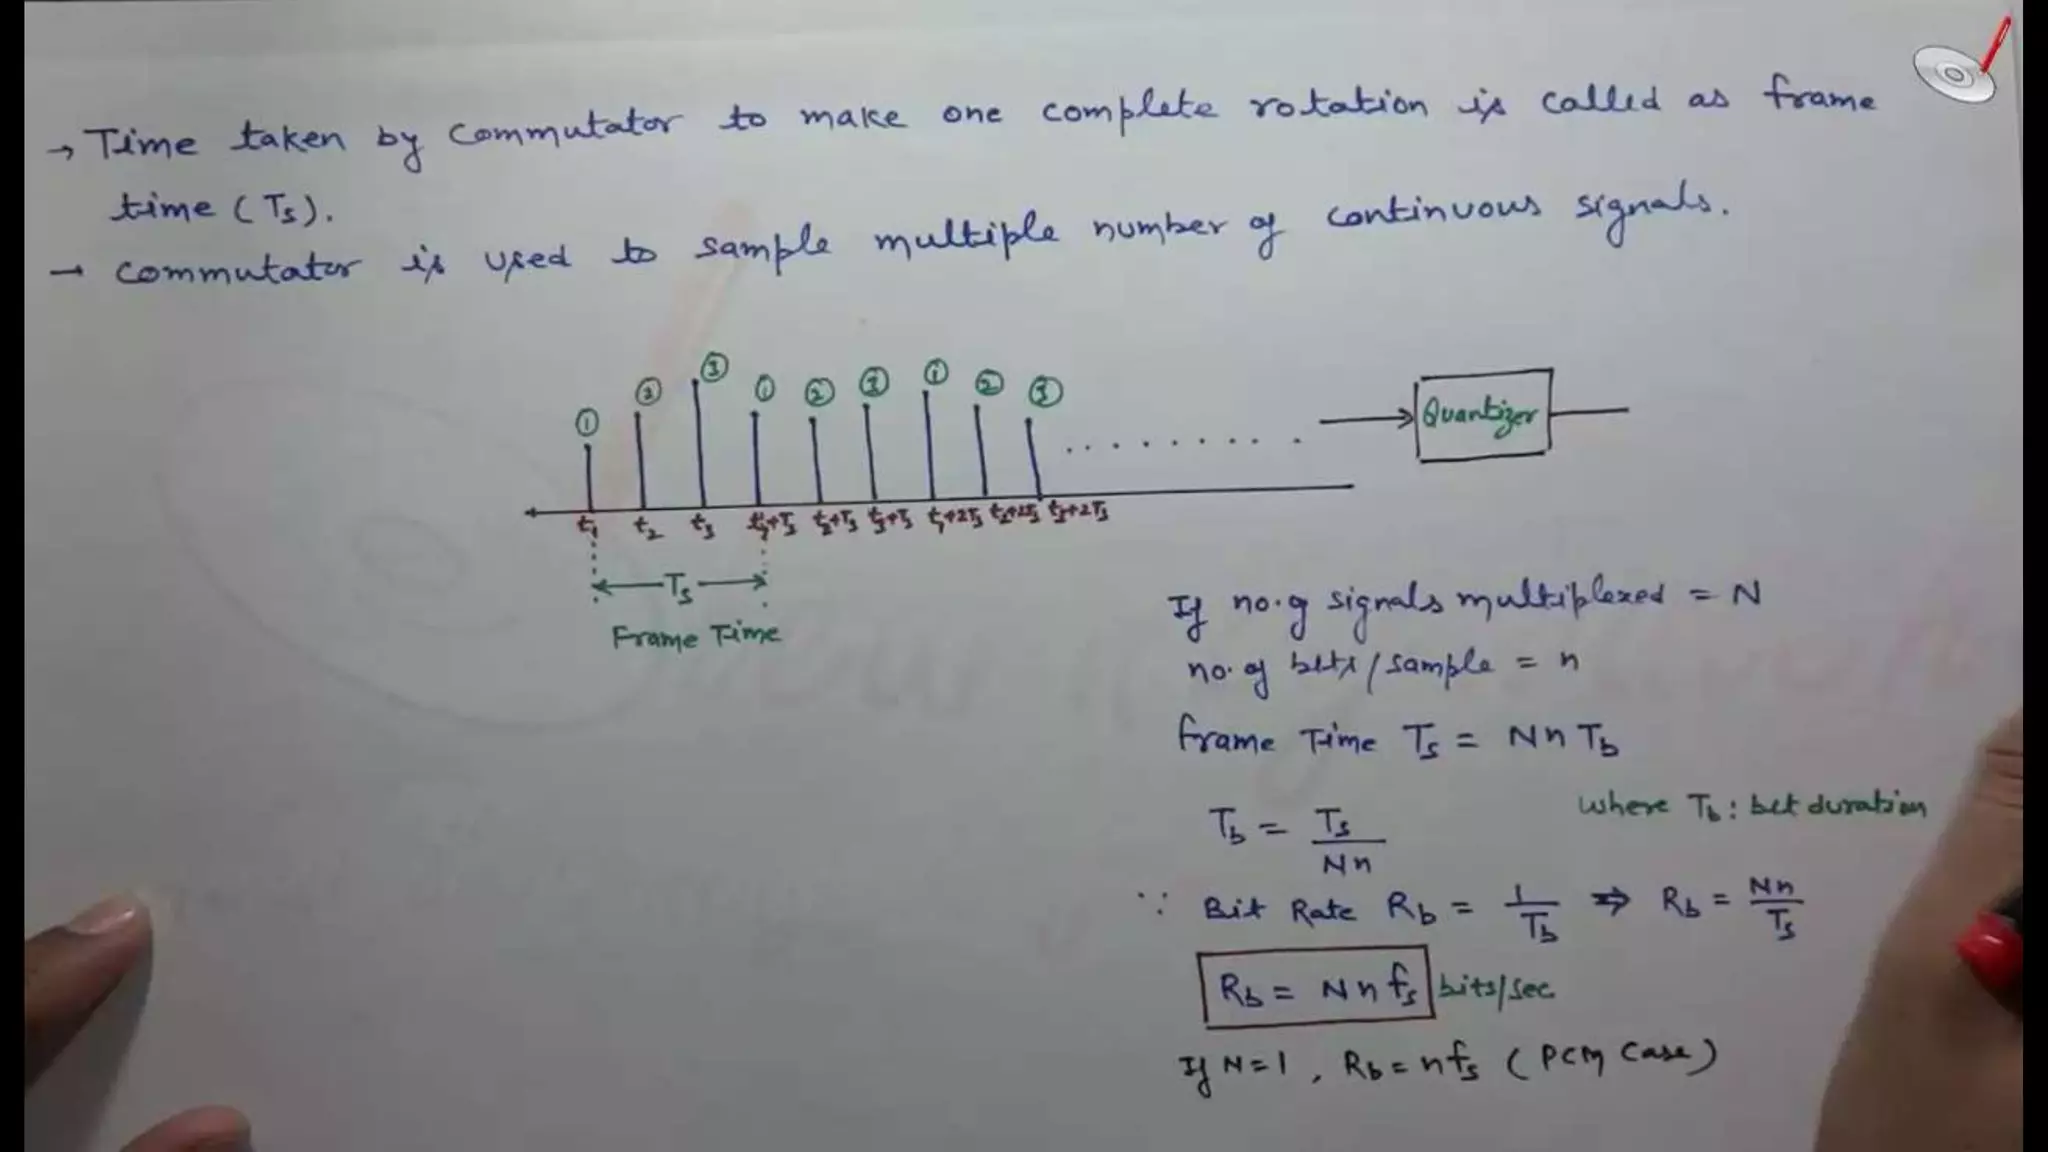 → Time taken by commutator to make one complete rotation is called as frame
time (Ts).
→ commutator is used to sample multiple number of continuous signals.
① ② ③ ① ② ③ ① ② ③
Quantizer
t1 t2 t3 t1+Ts t2+Ts t3+Ts t1+2Ts t2+2Ts t3+2Ts
Ts
Frame Time
If no. of signals multiplexed = N
no. of bits/sample = n
frame Time Ts = Nn Tb
where Tb : bit duration
Tb = Ts/Nn
∵ Bit Rate Rb = 1/Tb ⇒ Rb = Nn/Ts
Rb = Nn fs bits/sec
If N=1, Rb = nfs (PCM Case)